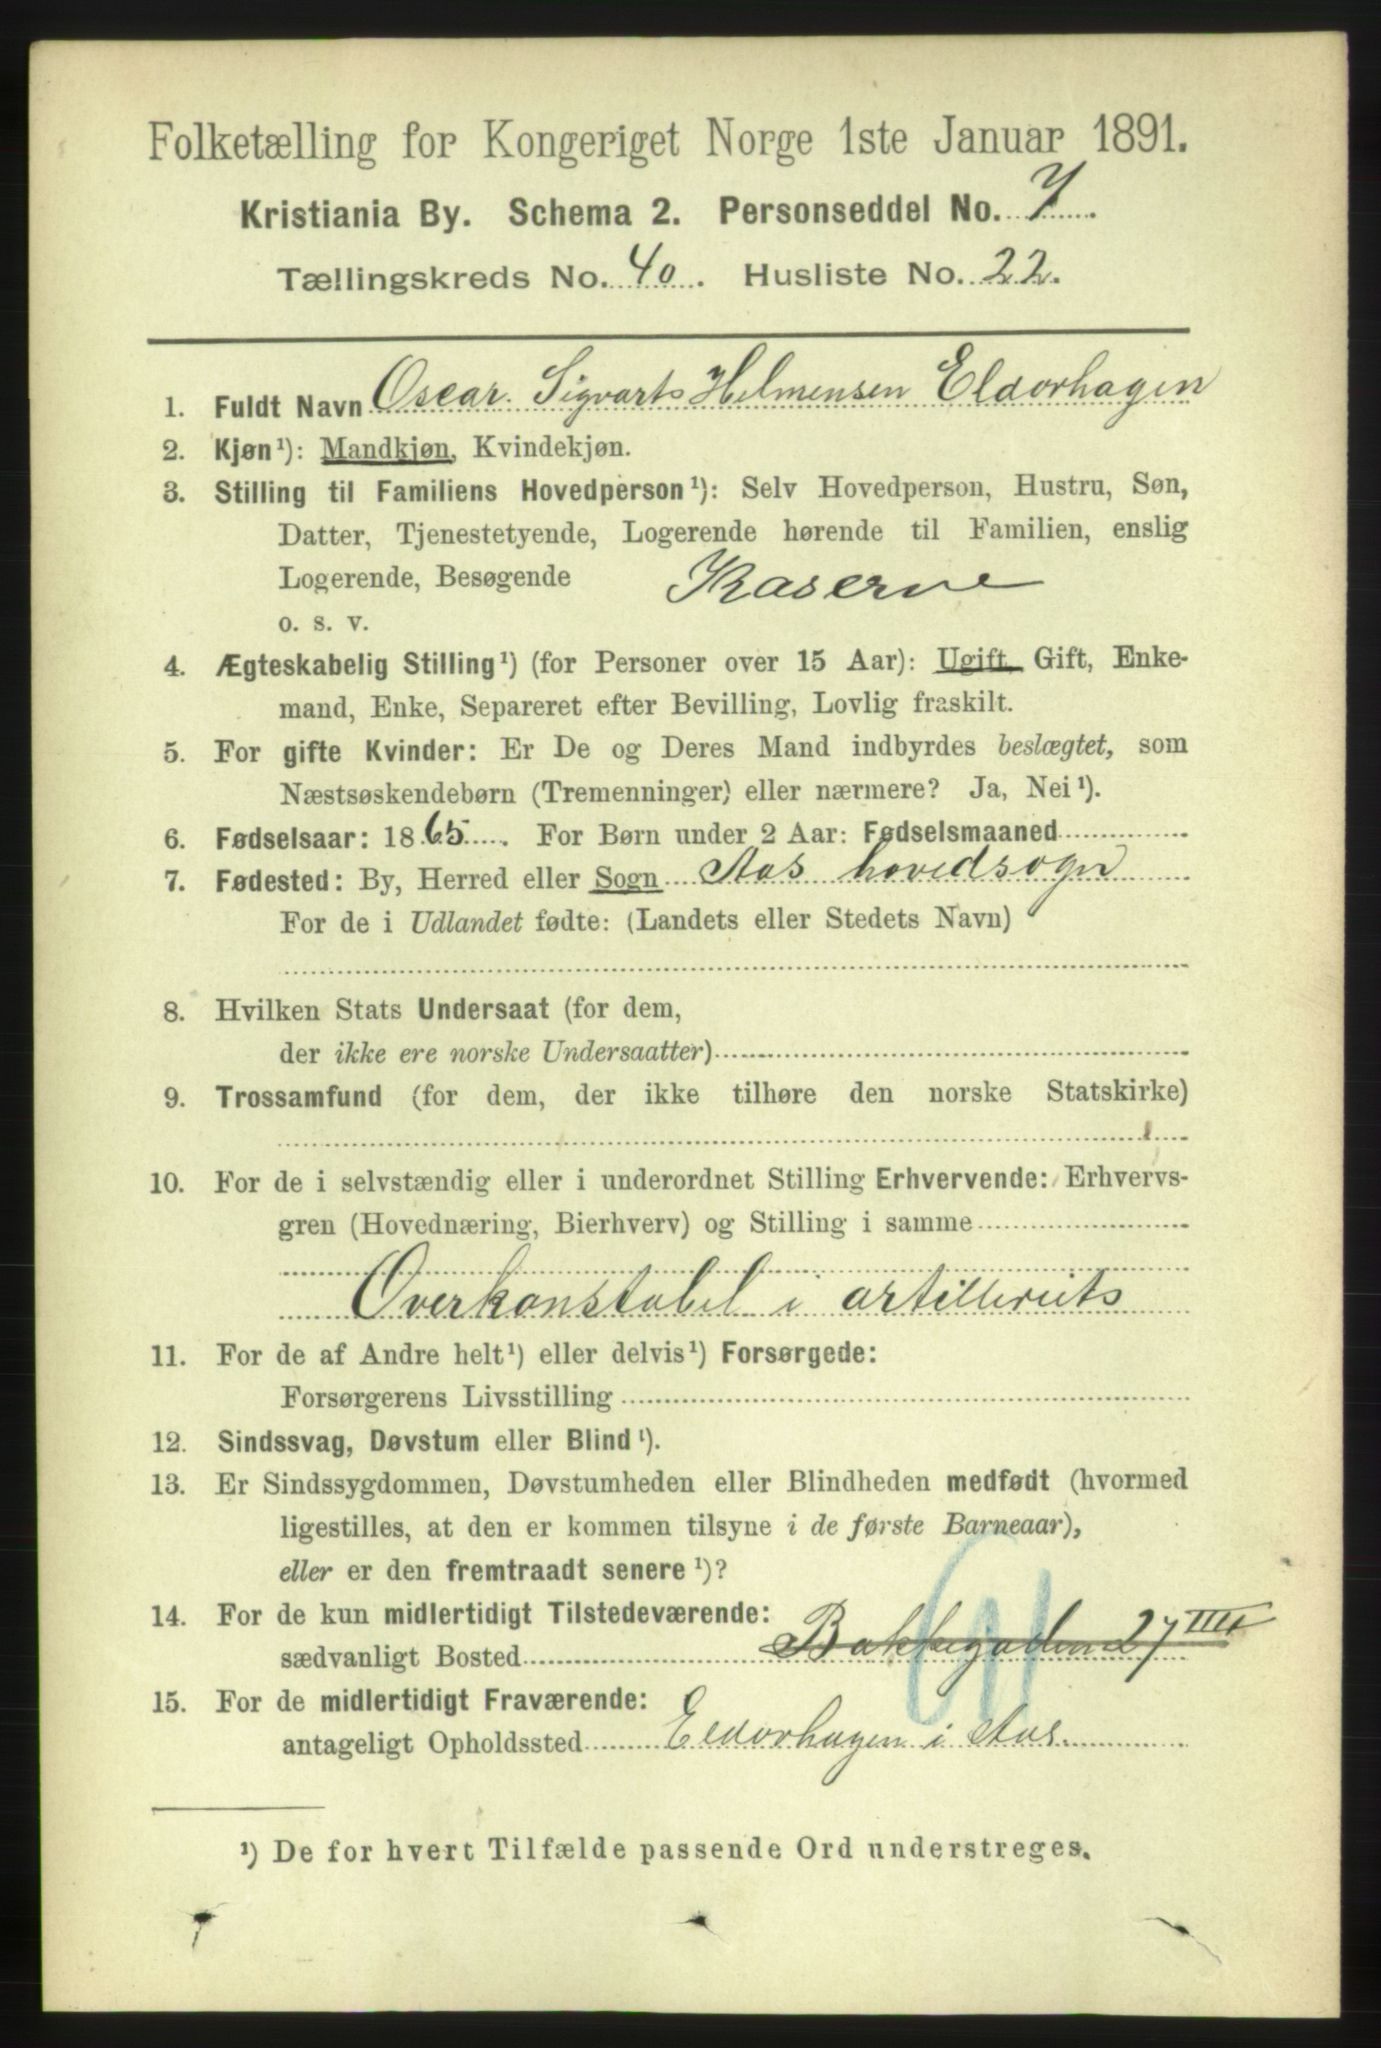 Folketælling for Kongeriget Norge 1ste Januar 1891.
Kristiania By. Schema 2. Personseddel No. 7.
Tællingskreds No. 40. Husliste No. 22.
1. Fuldt Navn Oscar Sigvarts Helmensen Eldorhagen
2. Kjøn¹): Mandkjøn, Kvindekjøn.
3. Stilling til Familiens Hovedperson¹): Selv Hovedperson, Hustru, Søn,
Datter, Tjenestetyende, Logerende hørende til Familien, enslig
Logerende, Besøgende Kaserne
o. s. v.
4. Ægteskabelig Stilling¹) (for Personer over 15 Aar): Ugift, Gift, Enke-
mand, Enke, Separeret efter Bevilling, Lovlig fraskilt.
5. For gifte Kvinder: Er De og Deres Mand indbyrdes beslægtet, som
Næstsøskendebørn (Tremenninger) eller nærmere? Ja, Nei¹).
6. Fødselsaar: 1865. For Børn under 2 Aar: Fødselsmaaned
7. Fødested: By, Herred eller Sogn Aas hovedsogn
For de i Udlandet fødte: (Landets eller Stedets Navn)
8. Hvilken Stats Undersaat (for dem,
der ikke ere norske Undersaatter)
9. Trossamfund (for dem, der ikke tilhøre den norske Statskirke)
10. For de i selvstændig eller i underordnet Stilling Erhvervende: Erhvervs-
gren (Hovednæring, Bierhverv) og Stilling i samme
Overkonstabel i artilleriets
11. For de af Andre helt¹) eller delvis¹) Forsørgede:
Forsørgerens Livsstilling
12. Sindssvag, Døvstum eller Blind¹).
13. Er Sindssygdommen, Døvstumheden eller Blindheden medfødt (hvormed
ligestilles, at den er kommen tilsyne i de første Barneaar),
eller er den fremtraadt senere¹)?
14. For de kun midlertidigt Tilstedeværende:
sædvanligt Bosted Bakkegaden 27 IIII
15. For de midlertidigt Fraværende:
antageligt Opholdssted Eldorhagen i Aas.
¹) De for hvert Tilfælde passende Ord understreges.